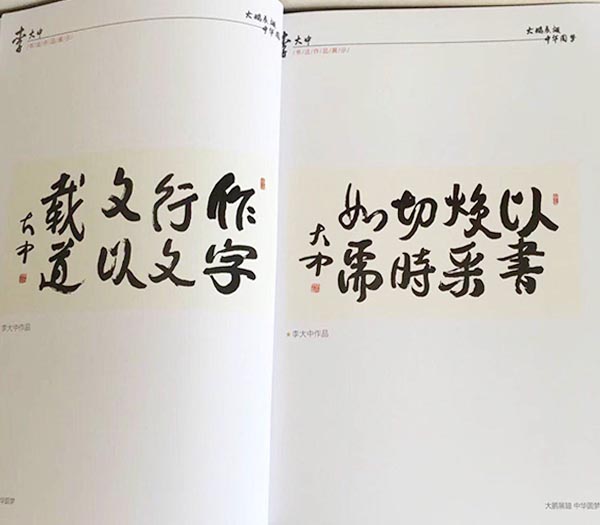 李大中
/书法作品展示/
大鹏展翅
中华圆梦
作字
行文
文以
載道
大中
李大中作品
华圆梦
李大中
/书法作品展示/
大鹏展翅
中华圆梦
以書
焕采
切時
如需
大中
★李大中作品
大鹏展翅 中华圆梦